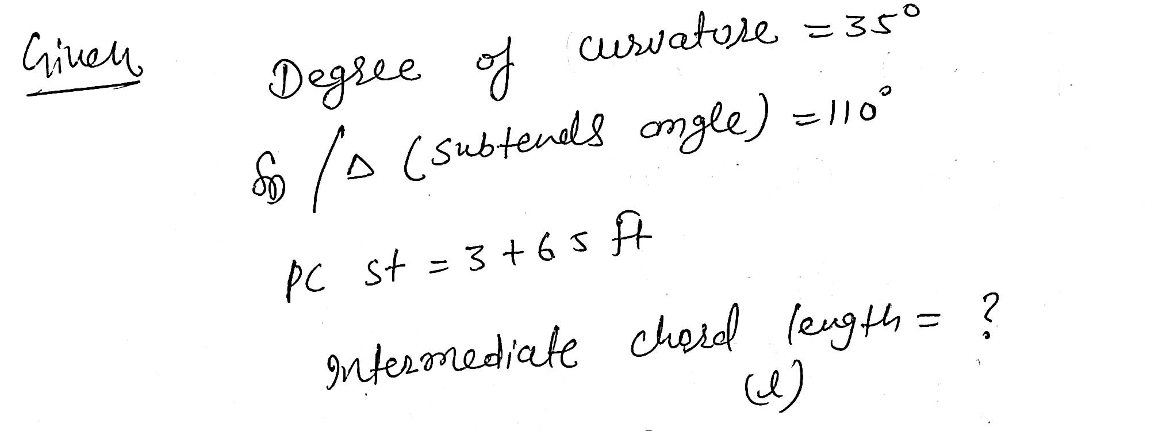 Given Degree of curvature = 35°
/Δ (subtends angle) = 110°
PC st = 3 + 65 ft
Intermediate chord length = ?
(l)